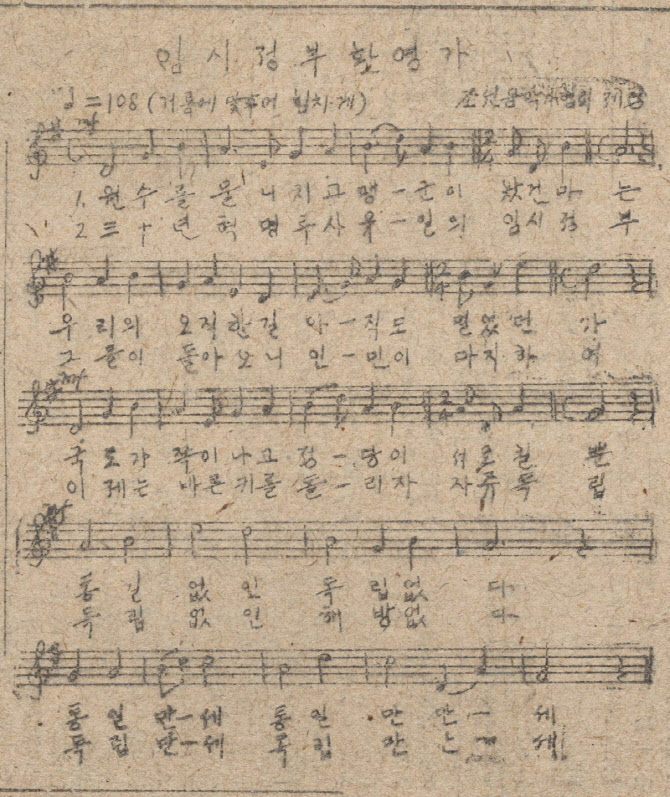 임시정부환영가
♩=108 (거름에 맞추어 힘차게)
조선음악가협회 제정
1. 원수를 물니치고 맹-군이 왔건마는
2. 三十년 혁명투사 유-일의 임시정부
우리의 오직한길 아-직도 멀었던가
그들이 돌아오니 인-민이 마지하여
mf
국토가 짝이나고 정-당이 서로 뿐
이제는 바른기를 돌-리자 자주독립
mf
통일 없인 독립없다
독립 없인 해방없다
통일만-세 통일만만-세
독립만-세 독립만 세